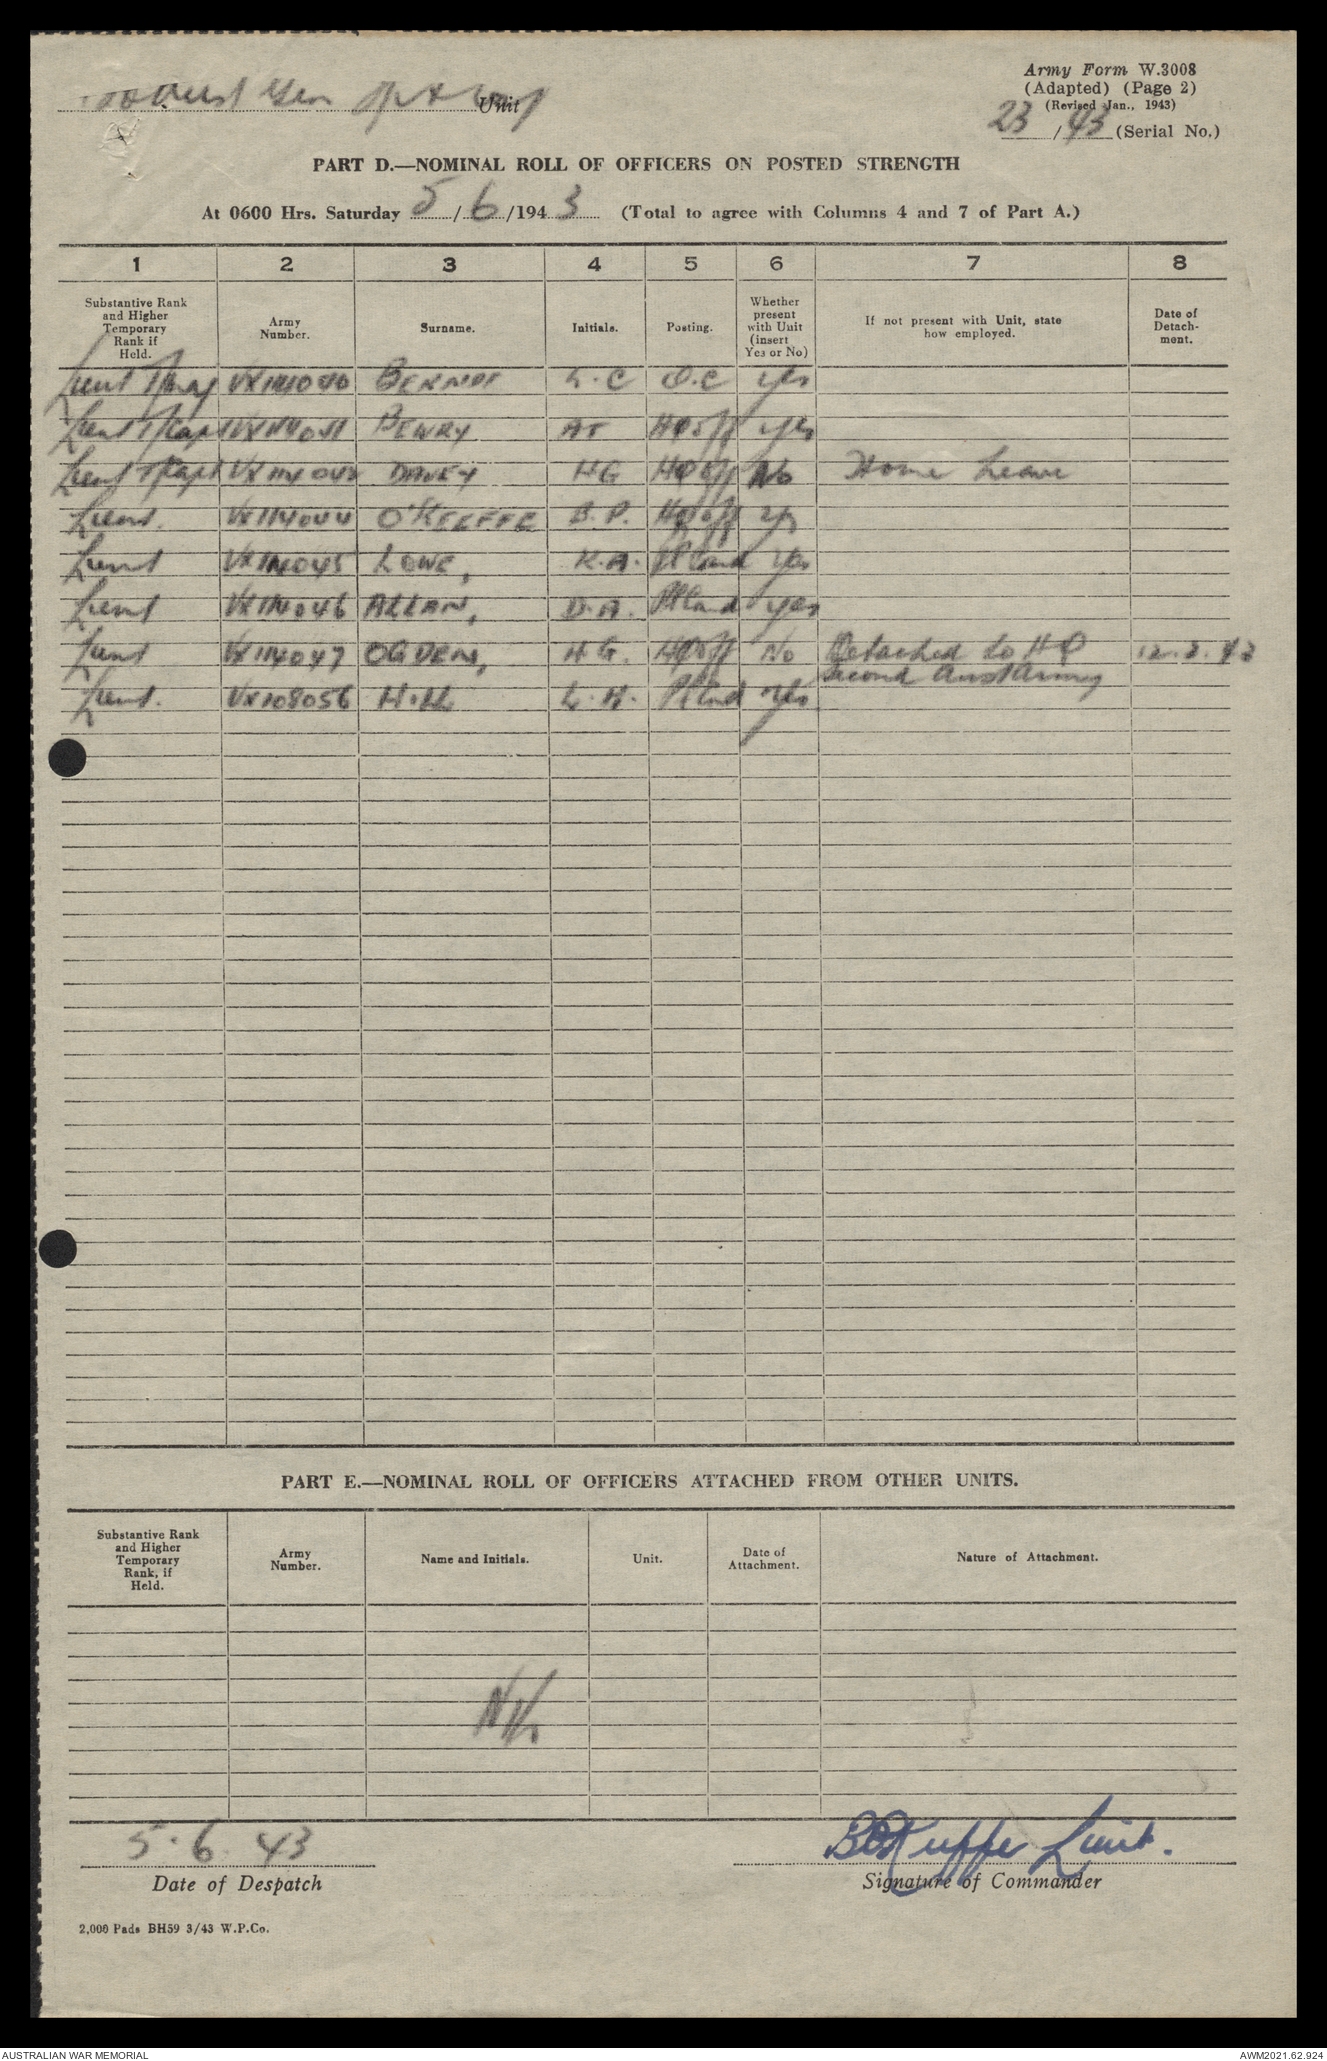 Aust Gen Tpt Coy Unit
Army Form W.3008
(Adapted) (Page 2)
(Revised Jan., 1943)
23/43 (Serial No.)
PART D.—NOMINAL ROLL OF OFFICERS ON POSTED STRENGTH
At 0600 Hrs. Saturday 5/6/1943 (Total to agree with Columns 4 and 7 of Part A.)
1 2 3 4 5 6 7 8
Substantive Rank and Higher Temporary Rank if Held. Army Number. Surname. Initials. Posting. Whether present with Unit (insert Yes or No) If not present with Unit, state how employed. Date of Detachment.
Lieut T/Maj VX114040 BERNDT L.C O.C Yes
Lieut T/Capt VX114041 BEWRY AT HQ Off Yes
Lieut T/Capt VX114042 DAVEY HG HQ Off No Home Leave
Lieut. VX114044 O'KEEFFE B.P. HQ Off Yes
Lieut VX114045 LOWE, K.A. Pl Cmd Yes
Lieut VX114046 ALLAN, D.A. Pl Cmd Yes
Lieut VX114047 OGDEN, H.G. HQ Off No Detached to HQ 12.2.43
Second Aust Army
Lieut. VX108056 HILL L.H. Pl Cmd Yes
PART E.—NOMINAL ROLL OF OFFICERS ATTACHED FROM OTHER UNITS.
Substantive Rank and Higher Temporary Rank, if Held. Army Number. Name and Initials. Unit. Date of Attachment. Nature of Attachment.
NIL
5.6.43
Date of Despatch
BPO'Keeffe Lieut.
Signature of Commander
2,000 Pads BH59 3/43 W.P.Co.
AUSTRALIAN WAR MEMORIAL
AWM2021.62.924